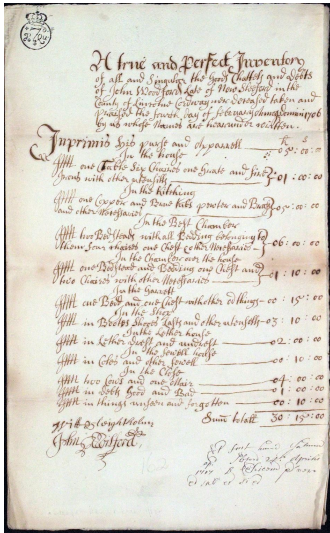 A true and Perfect Inventory
of all and Singular the Goods Chattels and Debts
of John Woodford Late of New Sleeford in the
County of Lincolne Cordwayner deceased taken and
Praised the fourth day of February
by us whose Names are hereunder written.
Imprimis His purse and Apparell 05 : 00 : 00
In the house
Ittm one Table Six Chaires one Grate and fire
Irons with other utensills 01 : 00 : 00
In the Kitching
Ittm one Copper and Brass Kitt pewter and Brass
and other Necessaries 05 : 00 : 00
In the Best Chamber
Ittm two Bedsteads with all Beding belonging to
them four Chaires one Chest & other Necessaries 06 : 00 : 00
In the Chamber over the house
Ittm one Bedstead and Bedding one Chest and
two Chaires with other Necessaries 01 : 10 : 00
In the Garrett
Ittm one Bed and one Chest with other od things 00 : 15 : 00
In the Shop
Ittm in Bootes Shooes Lasts and other utensills 03 : 10 : 00
In the Lether house
Ittm in Lether Drest and undrest 02 : 00 : 00
In the fewell house
Ittm in Coles and other fewell 00 : 10 : 00
In the Close
Ittm two Cows and one 04 : 00 : 00
Ittm in debts Good and Bad 01 : 00 : 00
Ittm in things unseen and forgotten 00 : 10 : 00
Sum totall 30 : 15 : 00
Will
John